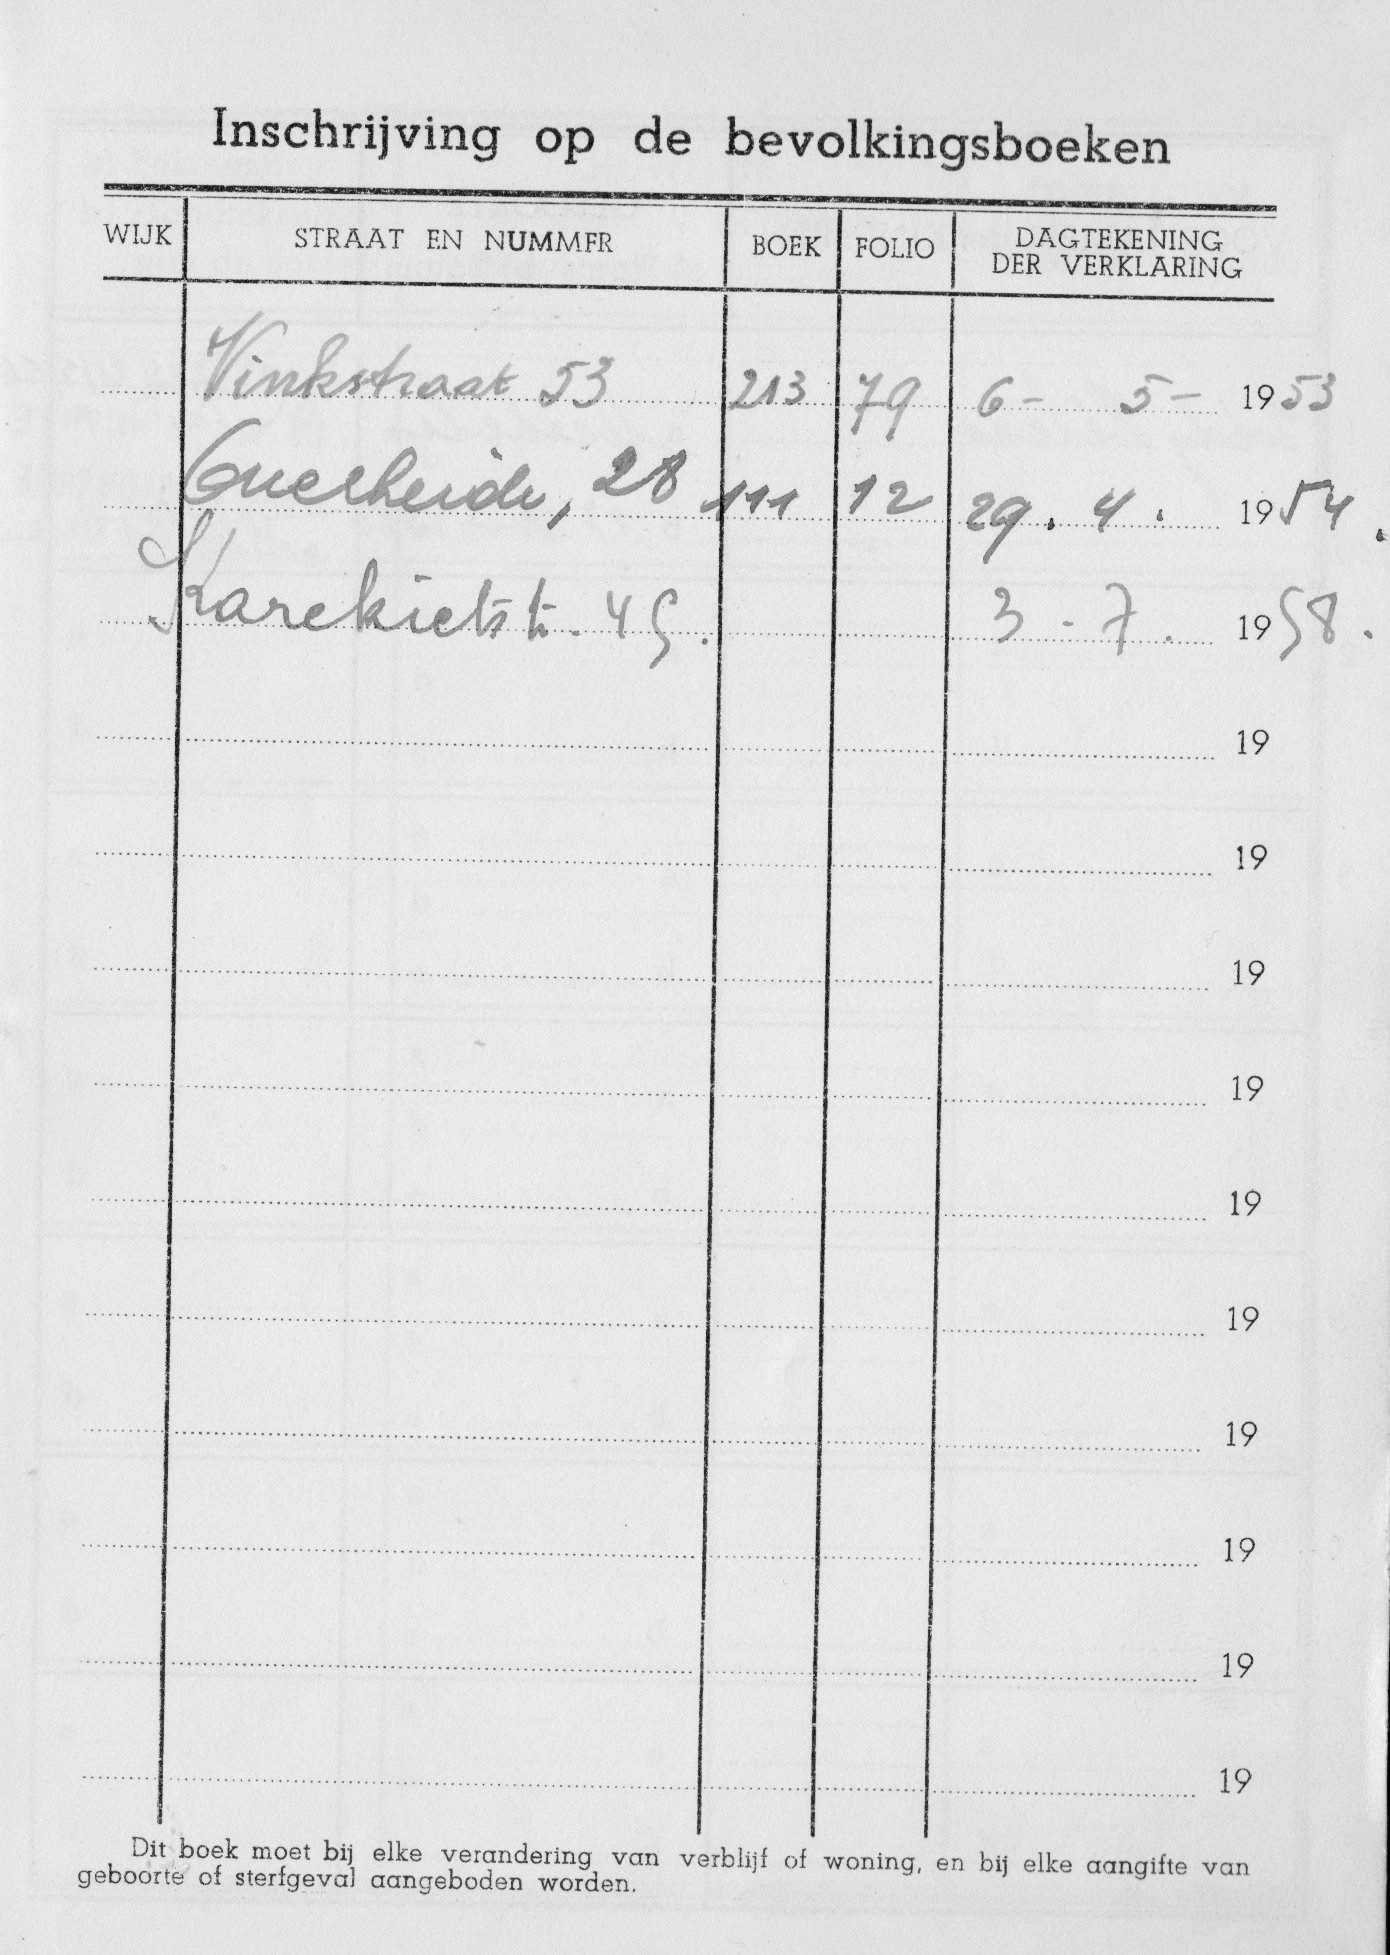 Inschrijving op de bevolkingsboeken
WIJK STRAAT EN NUMMER BOEK FOLIO DAGTEKENING DER VERKLARING
Vinkstraat 53 213 79 6- 5- 1953
28 111 12 29. 4. 1954.
Karekietstr. 45. 3-7. 1958.
19
19
19
19
19
19
19
19
19
19
Dit boek moet bij elke verandering van verblijf of woning, en bij elke aangifte van
geboorte of sterfgeval aangeboden worden.